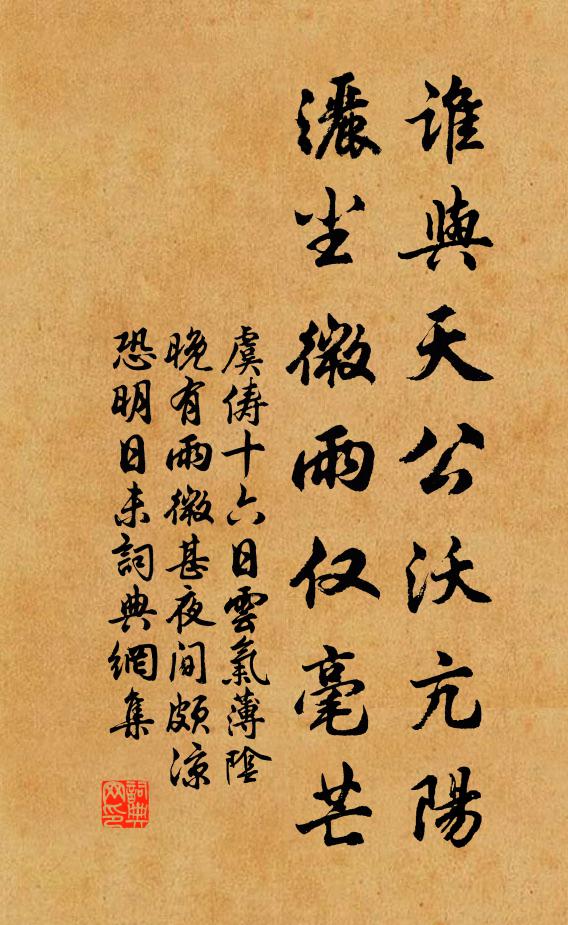 誰與天公沃亢陽
灑塵微雨仅毫芒
虞儔十六日雲氣薄陰
晚有雨微甚夜间頗凉
恐明日未詞典網集
詞典
网印